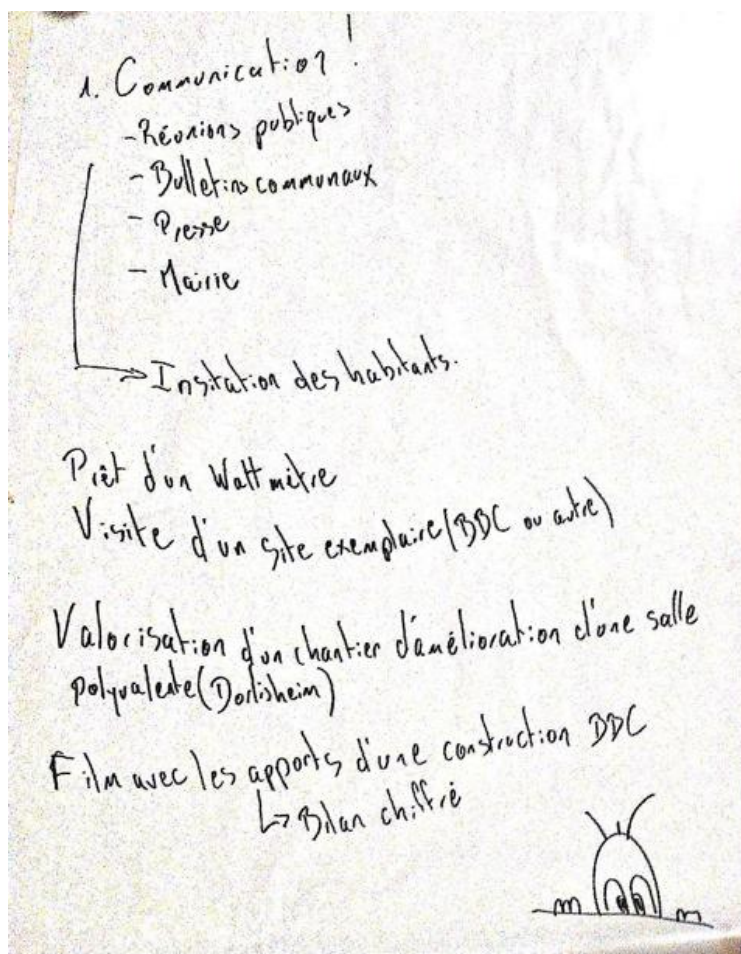 1. Communication !
- Réunions publiques
- Bulletins communaux
- Presse
- Mairie
Insitation des habitants.
Prêt d'un Wattmètre
Visite d'un site exemplaire (BBC ou autre)
Valorisation d'un chantier d'amélioration d'une salle
polyvalente (Dorlisheim)
Film avec les apports d'une construction BBC
Bilan chiffré